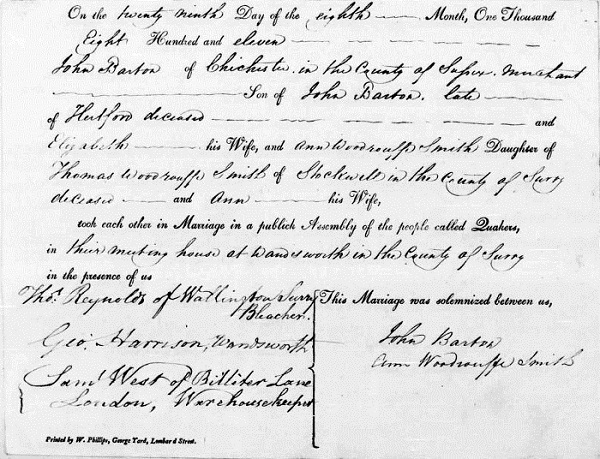 On the twenty ninth Day of the eighth Month, One Thousand
Eight Hundred and eleven
John Barton of Chichester in the County of Sussex. Merchant
Son of John Barton. late
of Hertford deceased and
Elizabeth his Wife, and Ann Woodrouffe Smith Daughter of
Thomas Woodrouffe Smith of Stockwell in the County of Surry
deceased and Ann his Wife,
took each other in Marriage in a publick Assembly of the people called Quakers,
in their meeting house at Wandsworth in the County of Surry
in the presence of us
Thos. Reynolds of Wallington Surry
Bleacher.
Geo. Harrison, Wandsworth
Saml West of Billiter Lane
London, Warehousekeeper
This Marriage was solemnized between us,
John Barton
Ann Woodrouffe Smith
Printed by W. Phillips, George Yard, Lombard Street.